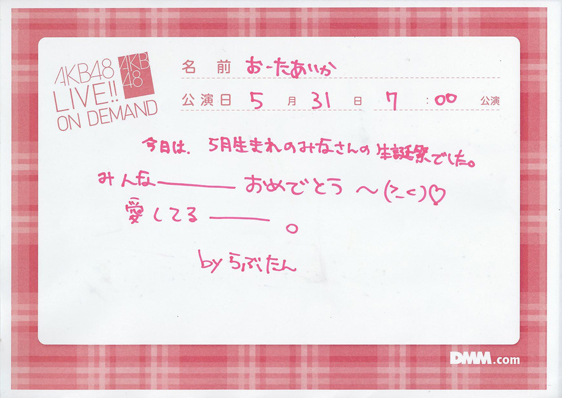 AKB48
LIVE!!
ON DEMAND
AKB
48
名前 おーたあいか
公演日 5月31日 7:00 公演
今日は、5月生まれのみなさんの生誕祭でした。
みんな――― おめでとう 〜(>_<)♡
愛してる―――。
by らぶたん
DMM.com